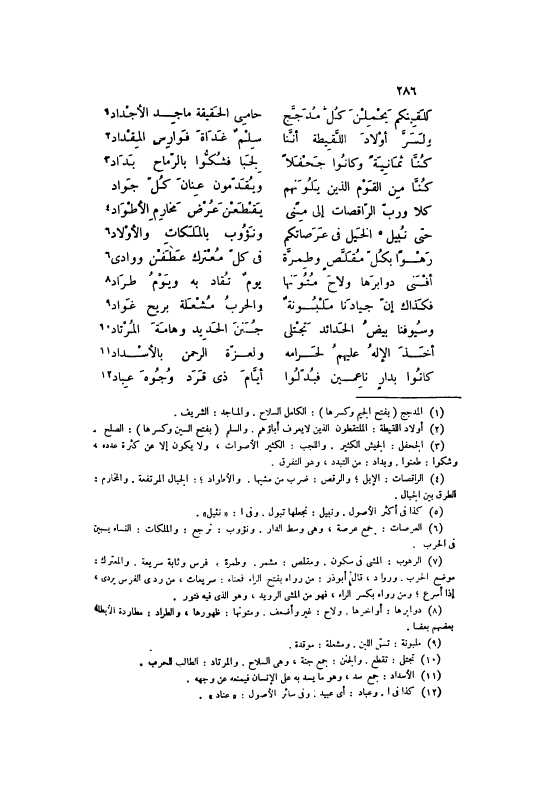 ٢٨٦
للقينكم يحملن كل مدجج حامى الحقيقة ماجد الأجداد١
ولسر أولاد اللقيطة أننا سلم غداة فوارس المقداد٢
كنا ثمانية وكانوا جحفلا لجبا فشكوا بالرماح بداد٣
كنا من القوم الذين يلونهم ويقدمون عنان كل جواد
كلا ورب الراقصات إلى منى يقطعن عرض مخارم الأطواد٤
حتى نبيل٥ الخيل فى عرصاتكم ونؤوب بالملكات والأولاد٦
رهوا بكل مقلص وطمرة فى كل معترك عطفن ووادى٦
أفنى دوابرها ولاح متونها يوم تقاد به ويوم طراد٨
فكذاك إن جيادنا ملبونة والحرب مشعلة بريح غواد٩
وسيوفنا بيض الحدائد تجتلى جنن الحديد وهامة المرتاد١٠
أخذ الإله عليهم لحرامه ولعزة الرحمن بالأسداد١١
كانوا بدار ناعمين فبدلوا أيام ذى قرد وجوه عباد١٢
(١) المدجج (بفتح الجيم وكسرها) : الكامل السلاح . والماجد : الشريف .
(٢) أولاد اللقيطة : الملتقطون الذين لا يعرف أباؤهم . والسلم (بفتح السين وكسرها) : الصلح .
(٣) الجحفل : الجيش الكثير . واللجب : الكثير الأصوات ، ولا يكون إلا عن كثرة عدده ،
وشكوا : طعنوا . وبداد : من التبدد ، وهو التفرق .
(٤) الراقصات : الإبل ؛ والرقص : ضرب من مشيها . والأطواد : الجبال المرتفعة . والمخارم :
الطرق بين الجبال .
(٥) كذا فى أكثر الأصول . ونبيل : نجعلها تبول . وفى ا : « نثيل» .
(٦) العرصات : جمع عرصة ، وهى وسط الدار . ونؤوب : نرجع : والملكات : النساء يسبين
فى الحرب .
(٧) الرهوب : المشى فى سكون . ومقلص : مشمر . وطمرة ، فرس وثابة سريعة . والمعترك :
موضع الحرب . ورواد ، قال أبوذر : من رواه بفتح الراء فمعناه : سريعات ، من ردى الفرس يردى ،
إذا أسرع ؛ ومن رواه بكسر الراء ، فهو من المشى الرويد ، وهو الذى فيه فتور .
(٨) دوابرها : أواخرها . ولاح : غير وأضعف . ومتونها : ظهورها ، والطراد : مطاردة الأبطال
بعضهم بعضا .
(٩) ملبونة : تسقى اللبن . ومشعلة : موقدة .
(١٠) تجتلى : تقطع . والجنن : جمع جنة ، وهى السلاح . والمرتاد : الطالب للحرب .
(١١) الأسداد : جمع سد ، وهو ما يسد به على الإنسان فيمنعه عن وجهه .
(١٢) كذا فى ا . وعباد : أى عبيد . وفى سائر الأصول : « عناد » .